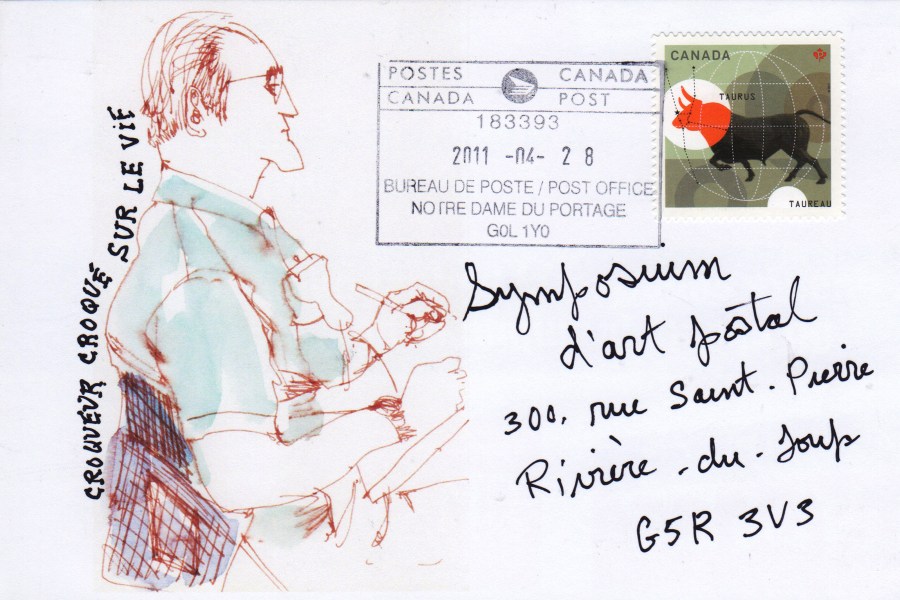 CROQUEUR CROQUÉ SUR LE VIF
POSTES CANADA
CANADA POST
183393
2011 -04- 28
BUREAU DE POSTE / POST OFFICE
NOTRE DAME DU PORTAGE
G0L 1Y0
CANADA
P
TAURUS
TAUREAU
Symposium
d'art postal
300, rue Saint-Pierre
Rivière-du-Loup
G5R 3V3